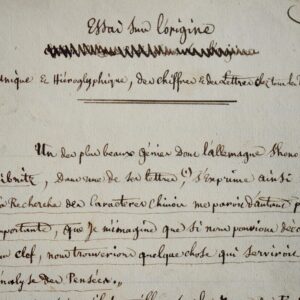 Essai sur l'origine
unique & Hiéroglyphique, des chiffres & des lettres chez tous les
Un des plus beaux Génies dont l'allemagne s'hono
ibnitz, dans une de ses lettres (1), s'exprime ainsi
a Recherche des Caractères Chinois me paroit d'autant p
mportante, que je m'imagine que si nous pouvions déco
la clef, nous trouverions quelque chose qui serviroit
analyse des Pensées.,,